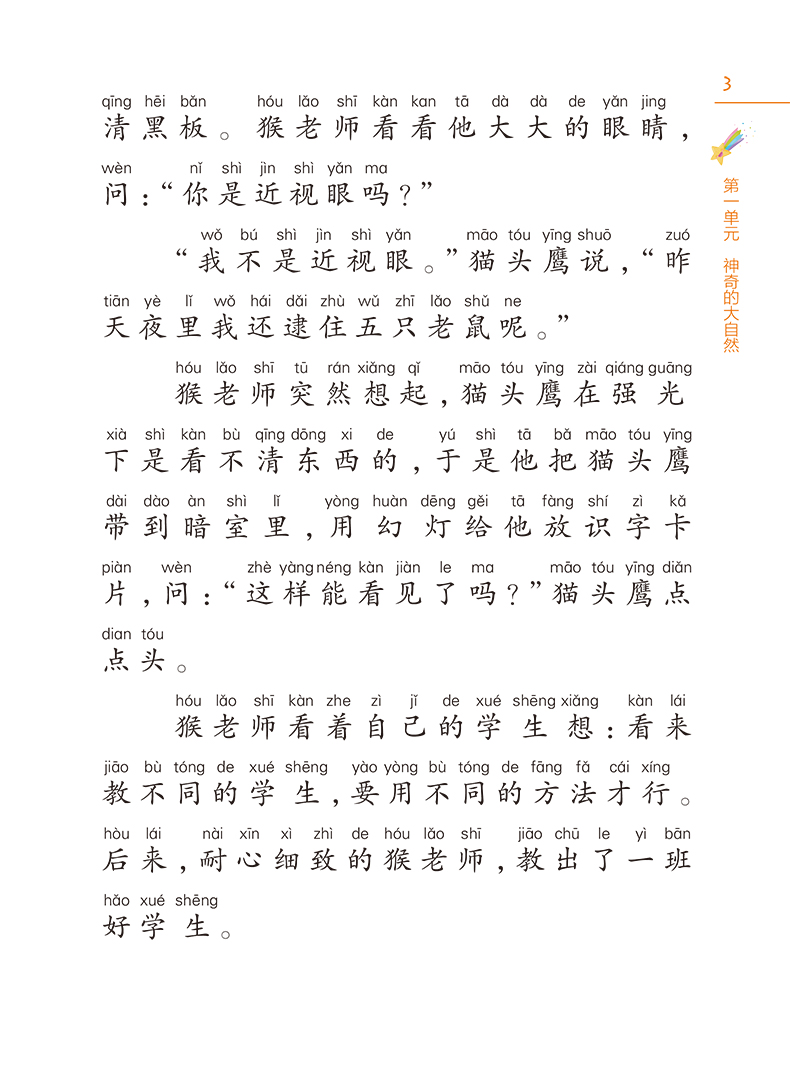 3
第一单元 神奇的大自然
qīng hēi bǎn hóu lǎo shī kàn kan tā dà dà de yǎn jing
清黑板。猴老师看看他大大的眼睛，
wèn nǐ shì jìn shì yǎn ma
问：“你是近视眼吗？”
wǒ bú shì jìn shì yǎn māo tóu yīng shuō zuó
“我不是近视眼。”猫头鹰说，“昨
tiān yè lǐ wǒ hái dǎi zhù wǔ zhī lǎo shǔ ne
天夜里我还逮住五只老鼠呢。”
hóu lǎo shī tū rán xiǎng qǐ māo tóu yīng zài qiáng guāng
猴老师突然想起，猫头鹰在强光
xià shì kàn bù qīng dōng xi de yú shì tā bǎ māo tóu yīng
下是看不清东西的，于是他把猫头鹰
dài dào àn shì lǐ yòng huàn dēng gěi tā fàng shí zì kǎ
带到暗室里，用幻灯给他放识字卡
piàn wèn zhè yàng néng kàn jiàn le ma māo tóu yīng diǎn
片，问：“这样能看见了吗？”猫头鹰点
dian tóu
点头。
hóu lǎo shī kàn zhe zì jǐ de xué shēng xiǎng kàn lái
猴老师看着自己的学生想：看来
jiāo bù tóng de xué shēng yào yòng bù tóng de fāng fǎ cái xíng
教不同的学生，要用不同的方法才行。
hòu lái nài xīn xì zhì de hóu lǎo shī jiāo chū le yì bān
后来，耐心细致的猴老师，教出了一班
hǎo xué shēng
好学生。